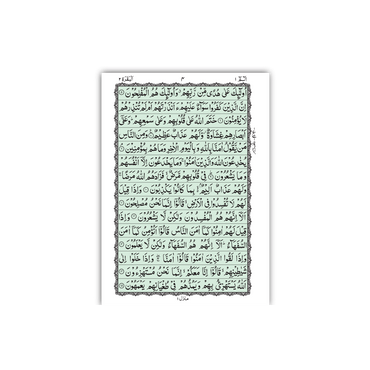 الٓمّٓ ١ ٣ البقرة ٢
اُولٰٓئِكَ عَلٰى هُدًى مِّنْ رَّبِّهِمْ وَاُولٰٓئِكَ هُمُ الْمُفْلِحُوْنَ
اِنَّ الَّذِيْنَ كَفَرُوْا سَوَآءٌ عَلَيْهِمْ ءَاَنْذَرْتَهُمْ اَمْ لَمْ تُنْذِرْهُمْ
لَا يُؤْمِنُوْنَ خَتَمَ اللّٰهُ عَلٰى قُلُوْبِهِمْ وَعَلٰى سَمْعِهِمْ وَعَلٰٓى
اَبْصَارِهِمْ غِشَاوَةٌ وَّلَهُمْ عَذَابٌ عَظِيْمٌ وَمِنَ النَّاسِ
مَنْ يَّقُوْلُ اٰمَنَّا بِاللّٰهِ وَبِالْيَوْمِ الْاٰخِرِ وَمَا هُمْ بِمُؤْمِنِيْنَ
يُخٰدِعُوْنَ اللّٰهَ وَالَّذِيْنَ اٰمَنُوْا وَمَا يَخْدَعُوْنَ اِلَّآ اَنْفُسَهُمْ
وَمَا يَشْعُرُوْنَ فِيْ قُلُوْبِهِمْ مَّرَضٌ فَزَادَهُمُ اللّٰهُ مَرَضًا
وَلَهُمْ عَذَابٌ اَلِيْمٌ بِمَا كَانُوْا يَكْذِبُوْنَ وَاِذَا قِيْلَ
لَهُمْ لَا تُفْسِدُوْا فِي الْاَرْضِ قَالُوْٓا اِنَّمَا نَحْنُ مُصْلِحُوْنَ
اَلَآ اِنَّهُمْ هُمُ الْمُفْسِدُوْنَ وَلٰكِنْ لَّا يَشْعُرُوْنَ وَاِذَا
قِيْلَ لَهُمْ اٰمِنُوْا كَمَآ اٰمَنَ النَّاسُ قَالُوْٓا اَنُؤْمِنُ كَمَآ اٰمَنَ
السُّفَهَآءُ اَلَآ اِنَّهُمْ هُمُ السُّفَهَآءُ وَلٰكِنْ لَّا يَعْلَمُوْنَ
وَاِذَا لَقُوا الَّذِيْنَ اٰمَنُوْا قَالُوْٓا اٰمَنَّا وَاِذَا خَلَوْا اِلٰى
شَيٰطِيْنِهِمْ قَالُوْٓا اِنَّا مَعَكُمْ اِنَّمَا نَحْنُ مُسْتَهْزِءُوْنَ
اَللّٰهُ يَسْتَهْزِئُ بِهِمْ وَيَمُدُّهُمْ فِيْ طُغْيَانِهِمْ يَعْمَهُوْنَ
منزل ١